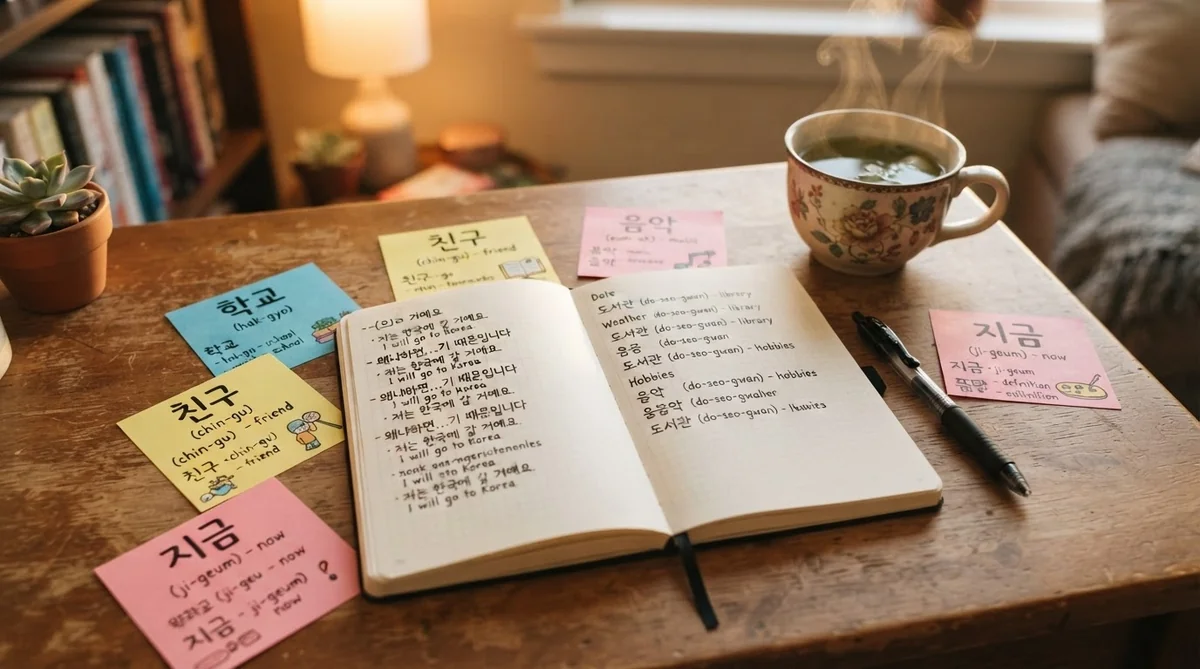 친구
(chin-gu) - friend
친구 - go
음악
학교
(hak-gyo)
학교
친구
(chin-gu) - friend
(chin-gu) - friend
친구 - chin-gu)
- friend
지금
(ji-geum) - now
(ji-geu - now
지금 - ji-geum)
now
?
--(으)ㄹ 거예요
· 저는 한국에 갈 거예요.
I will go to Korea
- 왜냐하면...기 때문입니다
· 저는 한국에 갈 거예요.
I will go to Korea
- 왜냐하면...기 때문입니다
· 저는 한국에 갈 거예요.
I will go to Korea
- 왜냐하면...기 때문입니다
· 저는 한국에 갈 거예요.
I will go to Korea
I will Korea
· 저는 한국에 갈 거예요.
I will go to Korea
Date
도서관 (do-seo-gwan) - library
Weather (do-seo-gwan) - library
도서관 (do-seo-gwan) - library
(do-seo-gwan
도서관 (do-seo-gwan) - hobbies
Hobbies
음악 (do-seo-gwan) - hobbies
도서관 (do-seo-gwan)
지금
(ji-geum) - now
지금 - ji-geum
- definition